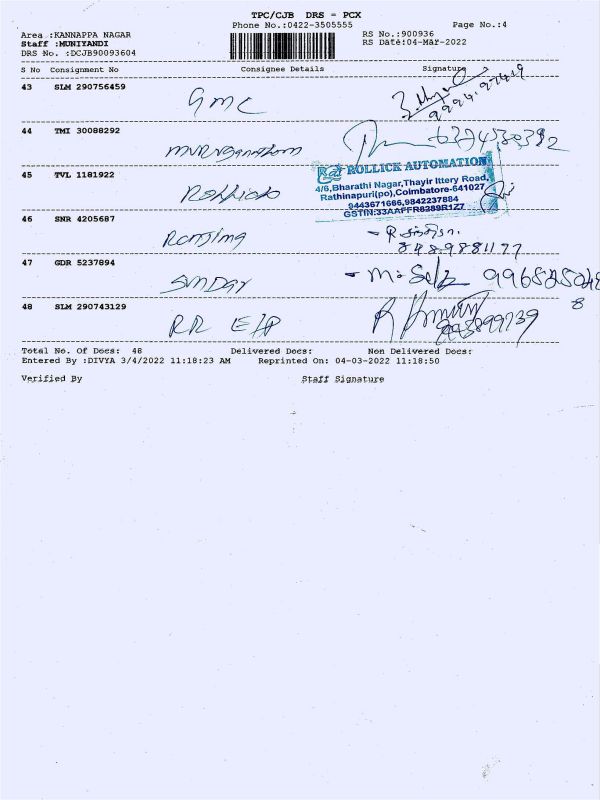 TPC/CJB DRS = PCX
Phone No.:0422-3505555 Page No.:4
Area :KANNAPPA NAGAR RS No.:900936
Staff :MUNIYANDI RS Date:04-Mar-2022
DRS No. :DCJB90093604
S No Consignment No Consignee Details Signature
43 SLM 290756459 GMC
44 TMI 30088292
45 TVL 1181922
ROLLICK AUTOMATION
4/6,Bharathi Nagar,Thayir Ittery Road,
Rathinapuri(po),Coimbatore-641027
9443671686,9842237884
46 SNR 4205687
8489881177
47 GDR 5237894 SUNDAR
48 SLM 290743129 RR
Total No. Of Docs: 48 Delivered Docs: Non Delivered Docs:
Entered By :DIVYA 3/4/2022 11:18:23 AM Reprinted On: 04-03-2022 11:18:50
Verified By Staff Signature